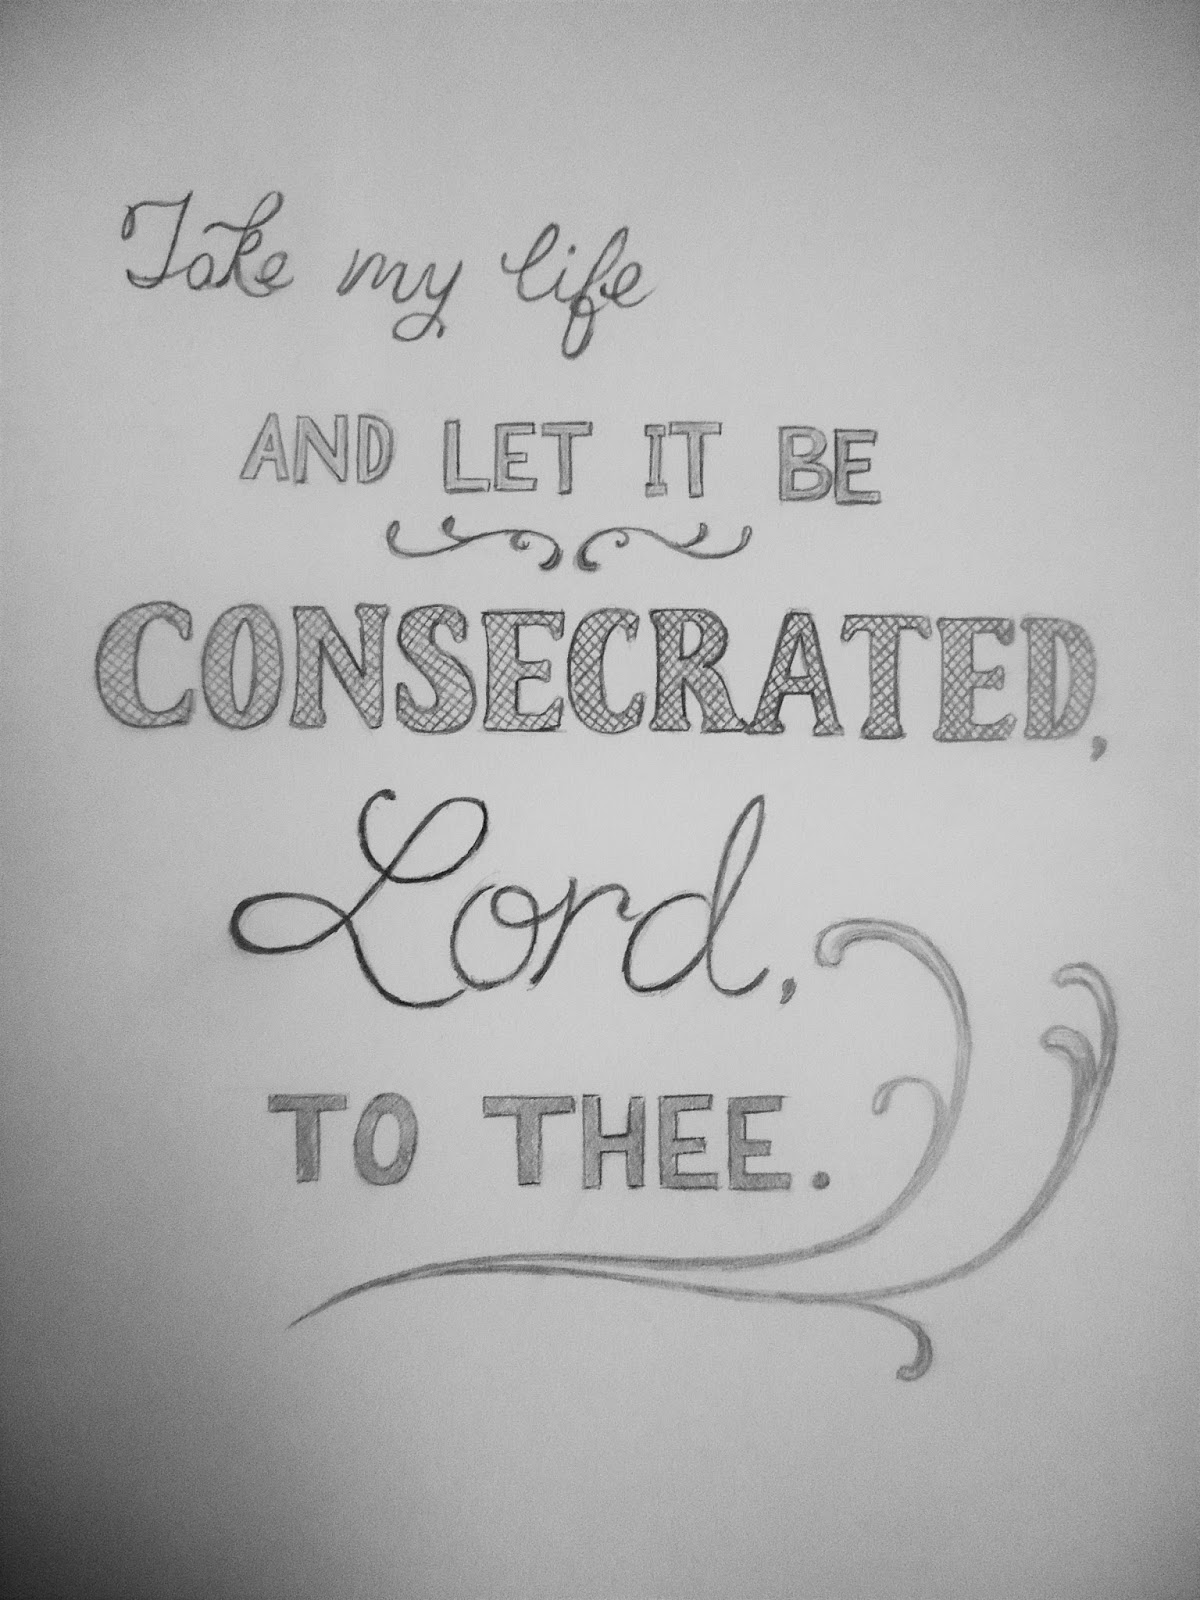 Take my life
AND LET IT BE
CONSECRATED,
Lord,
TO THEE.